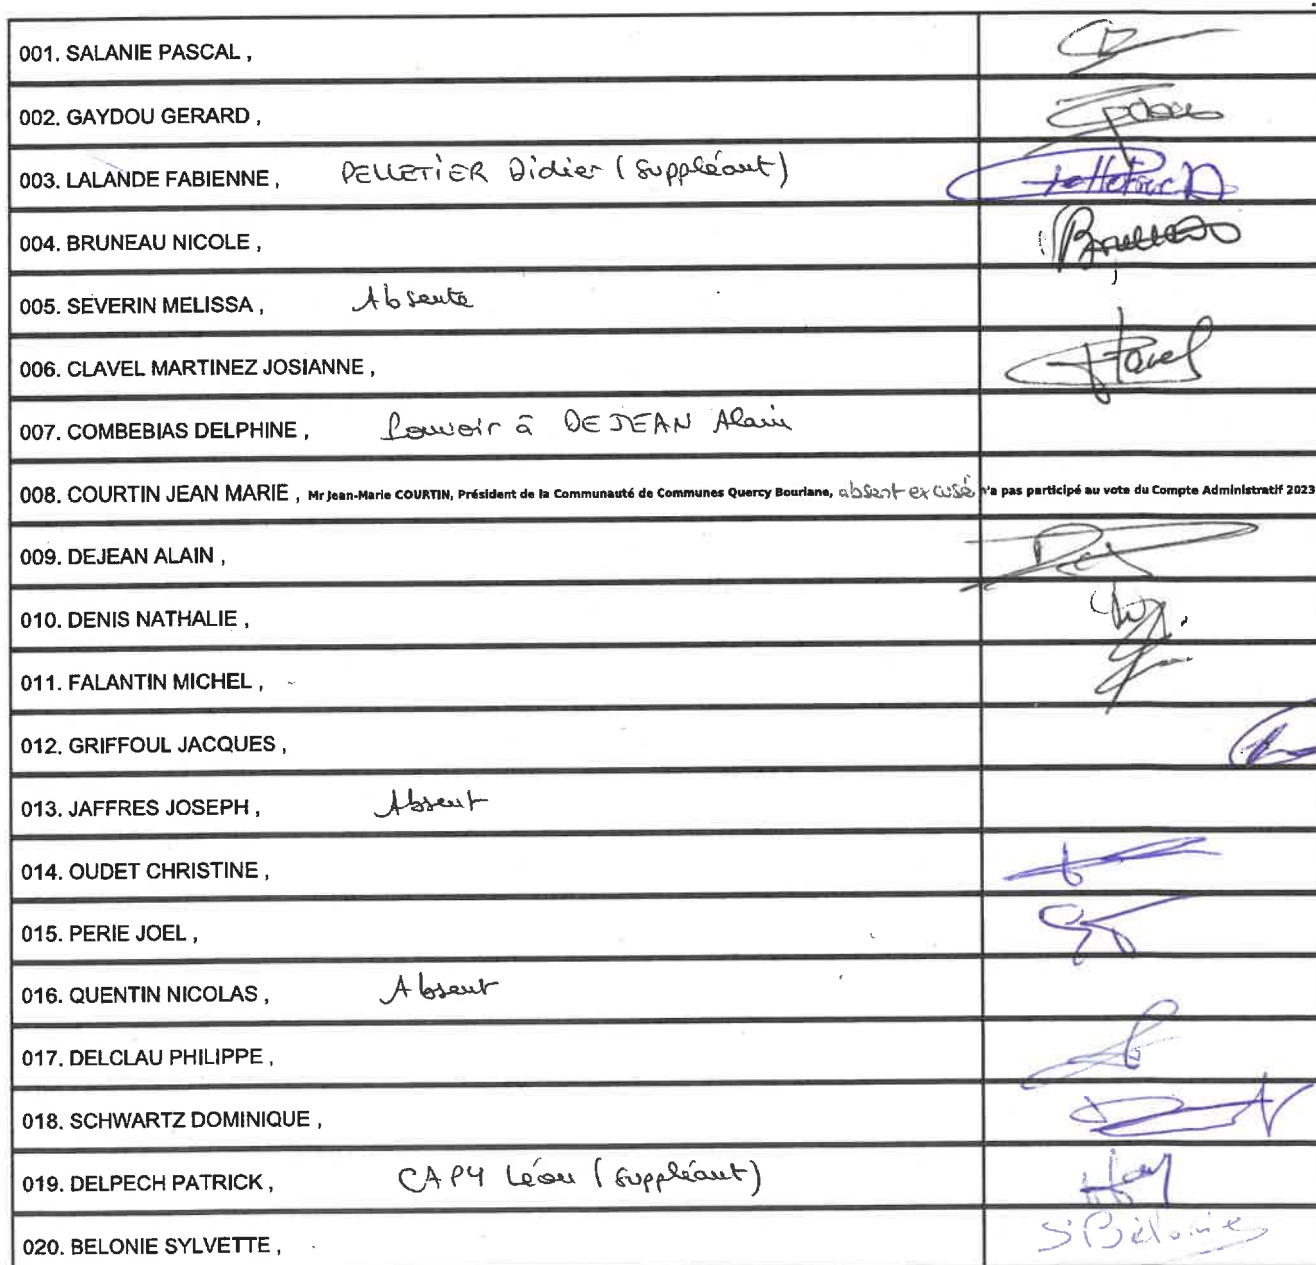 001. SALANIE PASCAL ,
002. GAYDOU GERARD ,
003. LALANDE FABIENNE , PELLETIER Didier (suppléant) Pelletier D
004. BRUNEAU NICOLE , Bruneau
005. SEVERIN MELISSA , Absente
006. CLAVEL MARTINEZ JOSIANNE , Clavel
007. COMBEBIAS DELPHINE , Pouvoir à DEJEAN Alain
008. COURTIN JEAN MARIE , Mr Jean-Marie COURTIN, Président de la Communauté de Communes Quercy Bouriane, absent excusé n'a pas participé au vote du Compte Administratif 2023
009. DEJEAN ALAIN ,
010. DENIS NATHALIE ,
011. FALANTIN MICHEL ,
012. GRIFFOUL JACQUES ,
013. JAFFRES JOSEPH , Absent
014. OUDET CHRISTINE ,
015. PERIE JOEL ,
016. QUENTIN NICOLAS , Absent
017. DELCLAU PHILIPPE ,
018. SCHWARTZ DOMINIQUE ,
019. DELPECH PATRICK , CAPY Léon (suppléant)
020. BELONIE SYLVETTE , S. Bélonie